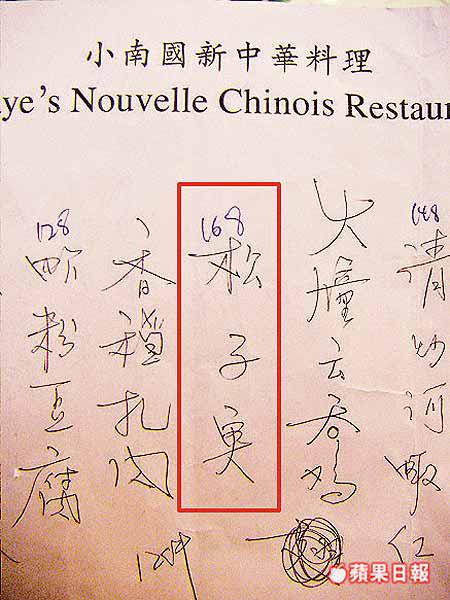 小南國新中華料理
ye's Nouvelle Chinois Restaur
148
清炒河蝦仁
火朣云吞鸡
168
松子魚
香稻扎肉
128
蟹粉豆腐
蘋果日報